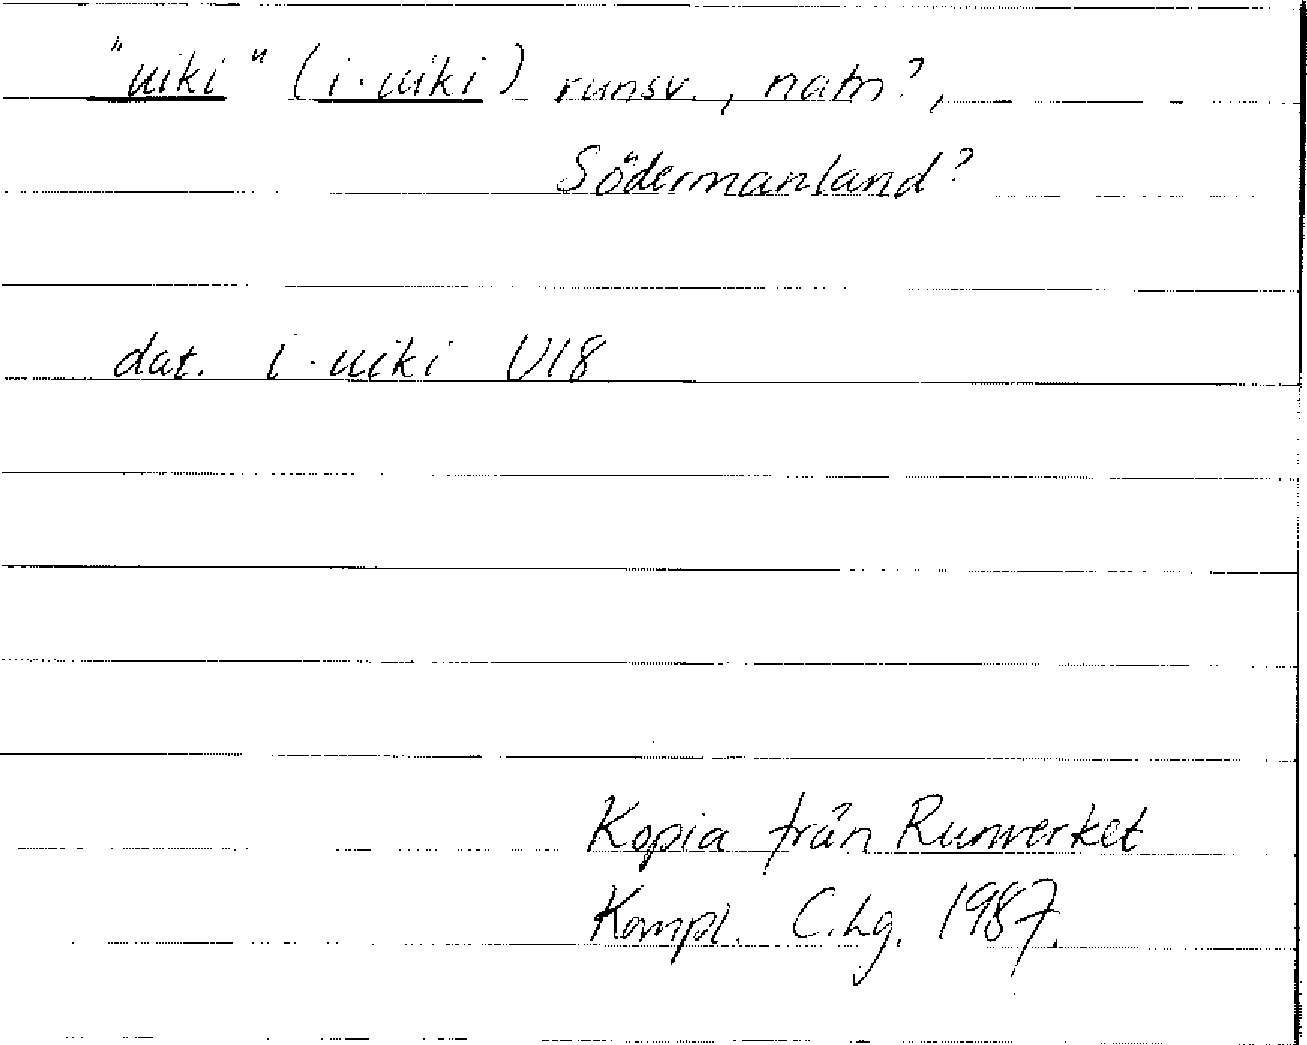 "uiki" (i·uiki) runsv., namn?,
Södermanland?
dat. i·uiki U18
Kopia från Runverket
Kompl. C.Lg. 1987.